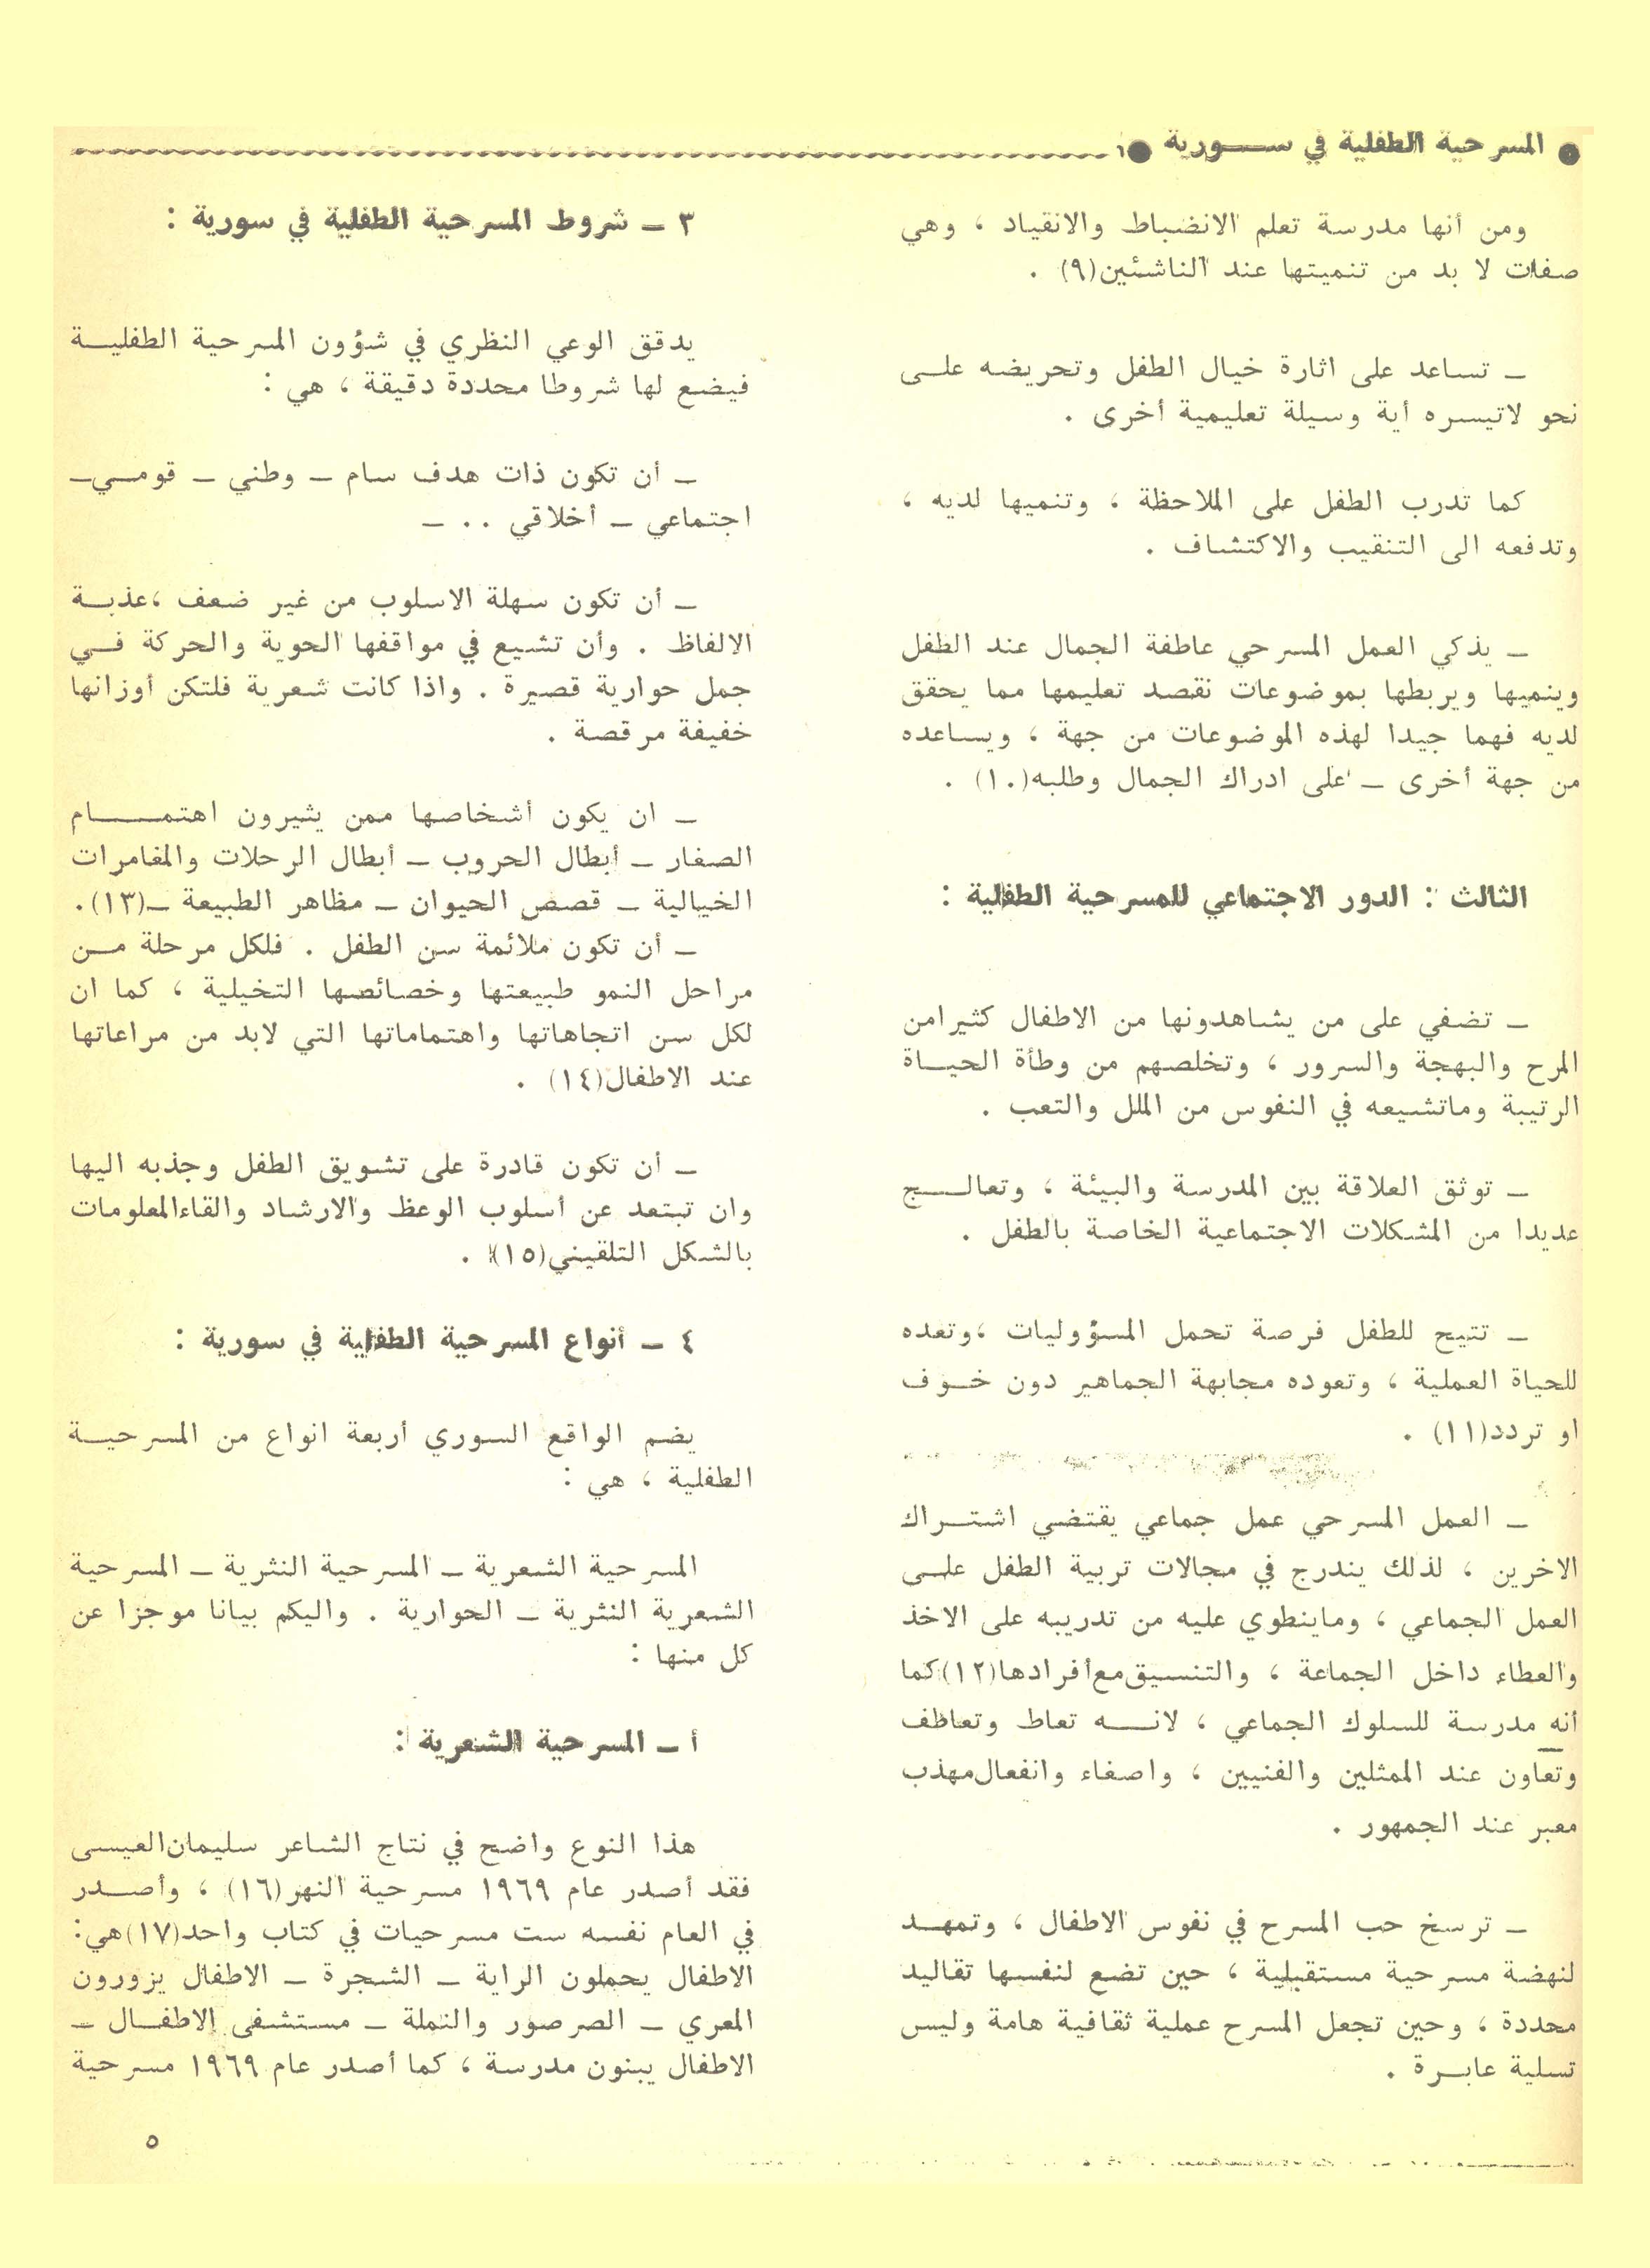 ● المسرحية الطفلية في ســـورية ●
ومن أنها مدرسة تعلم الانضباط والانقياد ، وهي
صفات لا بد من تنميتها عند الناشئين(٩) .
ـ تساعد على اثارة خيال الطفل وتحريضه علـى
نحو لاتيسره أية وسيلة تعليمية أخرى .
كما تدرب الطفل على الملاحظة ، وتنميها لديه ،
وتدفعه الى التنقيب والاكتشاف .
ـ يذكي العمل المسرحي عاطفة الجمال عند الطفل
وينميها ويربطها بموضوعات نقصد تعليمها مما يحقق
لديه فهما جيدا لهذه الموضوعات من جهة ، ويساعده
من جهة أخرى ـ على ادراك الجمال وطلبه(١٠) .
الثالث : الدور الاجتماعي للمسرحية الطفلية :
ـ تضفي على من يشاهدونها من الاطفال كثيرا من
المرح والبهجة والسرور ، وتخلصهم من وطأة الحيـاة
الرتيبة وماتشيعه في النفوس من الملل والتعب .
ـ توثق العلاقة بين المدرسة والبيئة ، وتعالــج
عديدا من المشكلات الاجتماعية الخاصة بالطفل .
ـ تتيح للطفل فرصة تحمل المسؤوليات ،وتعده
للحياة العملية ، وتعوده مجابهة الجماهير دون خـوف
او تردد(١١) .
ـ العمل المسرحي عمل جماعي يقتضي اشتـراك
الاخرين ، لذلك يندرج في مجالات تربية الطفل علـى
العمل الجماعي ، وماينطوي عليه من تدريبه على الاخذ
والعطاء داخل الجماعة ، والتنسيق مع أفرادها(١٢)كما
أنه مدرسة للسلوك الجماعي ، لانـــه تعاط وتعاطف
وتعاون عند الممثلين والفنيين ، واصغاء وانفعال مهذب
معبر عند الجمهور .
ـ ترسخ حب المسرح في نفوس الاطفال ، وتمهـد
لنهضة مسرحية مستقبلية ، حين تضع لنفسها تقاليد
محددة ، وحين تجعل المسرح عملية ثقافية هامة وليس
تسلية عابـرة .
٣ ـ شروط المسرحية الطفلية في سورية :
يدقق الوعي النظري في شؤون المسرحية الطفليـة
فيضع لها شروطا محددة دقيقة ، هي :
ـ أن تكون ذات هدف سام ـ وطني ـ قومـي ـ
اجتماعي ـ أخلاقي . . ـ
ـ أن تكون سهلة الاسلوب من غير ضعف ،عذبـة
الالفاظ . وأن تشيع في مواقفها الحوية والحركة فــي
جمل حوارية قصيرة . واذا كانت شعرية فلتكن أوزانها
خفيفة مرقصة .
ـ ان يكون أشخاصها ممن يثيرون اهتمــــام
الصغار ـ أبطال الحروب ـ أبطال الرحلات والمغامرات
الخيالية ـ قصص الحيوان ـ مظاهر الطبيعة ـ(١٣).
ـ أن تكون ملائمة سن الطفل . فلكل مرحلة مـن
مراحل النمو طبيعتها وخصائصها التخيلية ، كما ان
لكل سن اتجاهاتها واهتماماتها التي لابد من مراعاتها
عند الاطفال(١٤) .
ـ أن تكون قادرة على تشويق الطفل وجذبه اليها
وان تبتعد عن أسلوب الوعظ والارشاد والقاءالمعلومات
بالشكل التلقيني(١٥) .
٤ ـ أنواع المسرحية الطفلية في سورية :
يضم الواقع السوري أربعة انواع من المسرحيـة
الطفلية ، هي :
المسرحية الشعرية ـ المسرحية النثرية ـ المسرحية
الشعرية النثرية ـ الحوارية . واليكم بيانا موجزا عن
كل منها :
أ ـ المسرحية الشعرية :
هذا النوع واضح في نتاج الشاعر سليمان العيسى
فقد أصدر عام ١٩٦٩ مسرحية النهر(١٦) ، وأصـدر
في العام نفسه ست مسرحيات في كتاب واحد(١٧)هي:
الاطفال يحملون الراية ـ الشجرة ـ الاطفال يزورون
المعري ـ الصرصور والنملة ـ مستشفى الاطفـال ـ
الاطفال يبنون مدرسة ، كما أصدر عام ١٩٦٩ مسرحية
٥